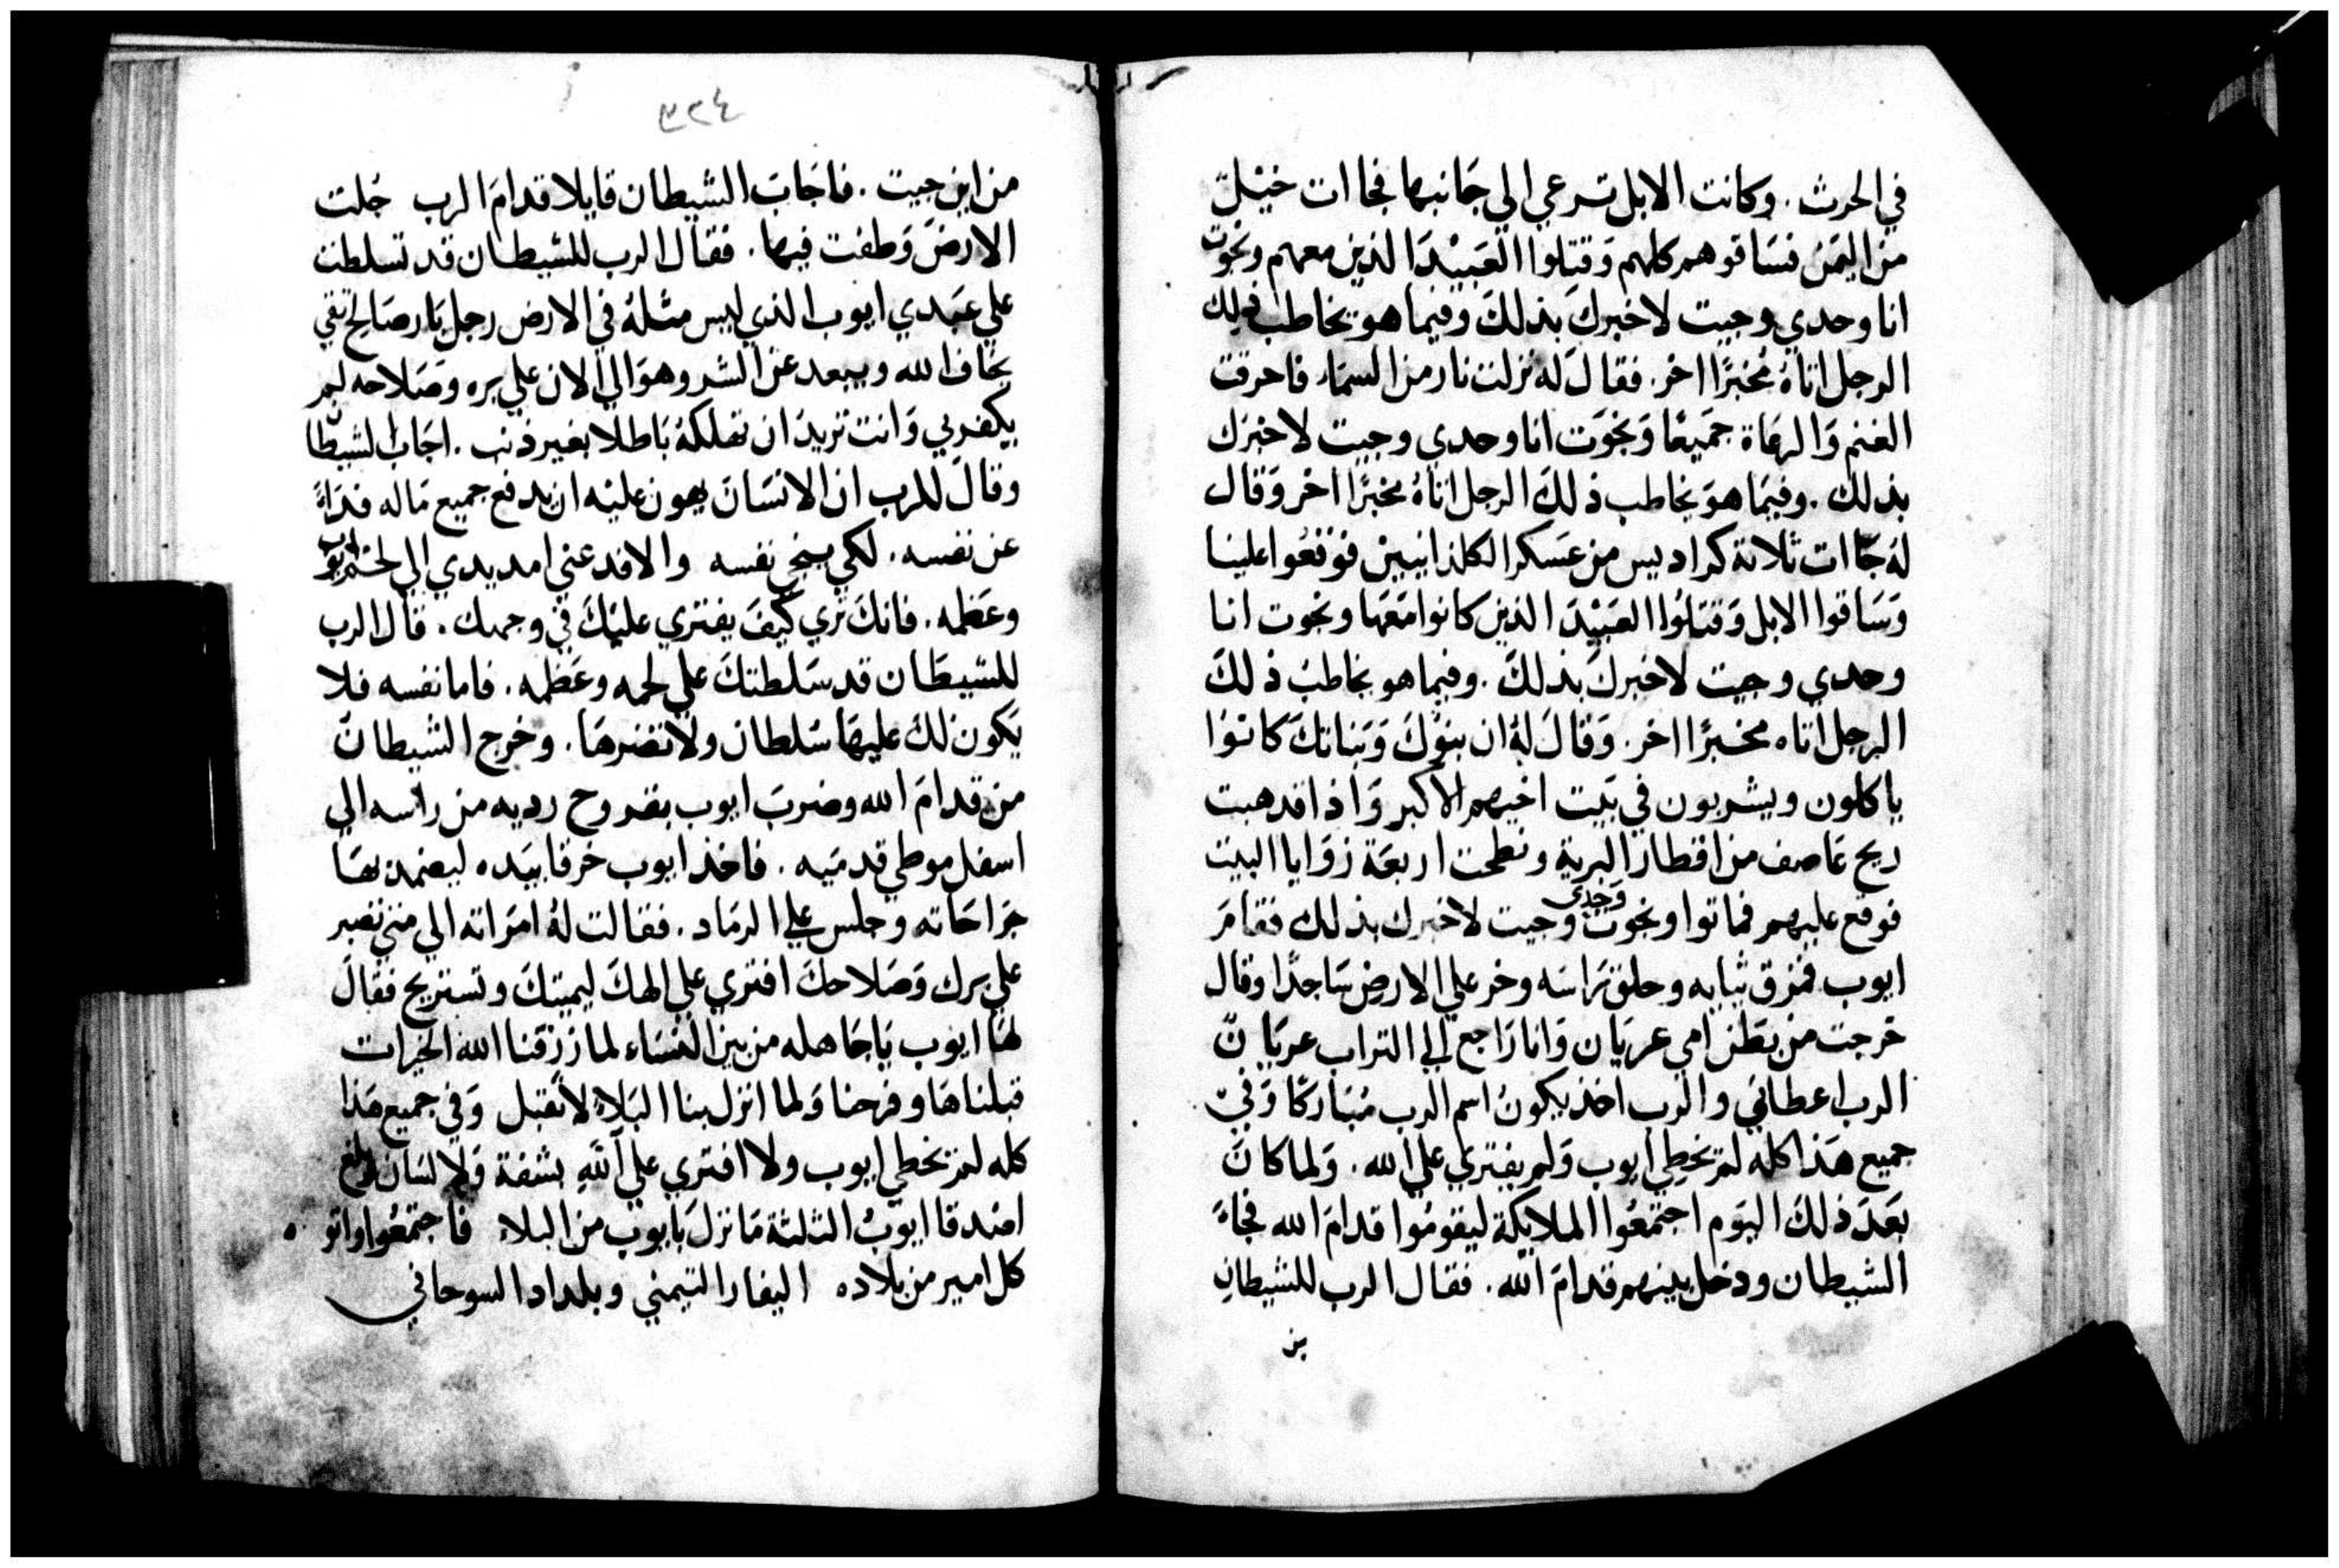 في الحرث. وكانت الابل ترعي الي جَانبها فجاات خيْلٌ
من اليَمَن فسَاقوهم كلهم وَقتلوا العَبيْدَ الذين معهم ونجوت
انا وحدي وجيت لاخبركَ بذلكَ وفيما هو يخاطب ذلك
الرجل اتاهُ مُخبرًا اخر. فقالَ له نزلت نار من السمَاء فاحرقت
الغنم وَالرعَاة جَميعًا وَنجوَت انا وحدي وجيت لاخبرَك
بذلك. وفيمَا هوَ يخاطب ذلكَ الرجل اتاهُ مخبرًا اخر وَقال
لهَ جَاات ثلاثة كراديس من عَسكر الكلدانيين فوَقعُوا علينا
وَسَاقوا الابل وَقتلوُا العَبيْدَ الذين كانوا مَعَها ونجوت انا
وحدي وجيت لاخبركَ بذلكَ. وفيما هو يخاطبُ ذلكَ
الرجل اتاه مخبرًا اخر. وَقالَ لهُ ان بنوْكَ وَبَناتكَ كانوْا
ياكلون ويشربون في بَيت اخيهم الاكبر وَاذا قد هبت
ريح عَاصف من اقطار البرية ونطحت اربعَة زوَايا البيت
فوقع عليهم فماتوا ونجوت وَحدي وجيت لاخبرك بذلك فقامَ
ايوب فمزق ثيابه وحلق رَاسَه وخر علي الارض سَاجدًا وقال
خرجت من بَطن امي عريَان وَانا رَاجع الي التراب عريَانٌ
الرب اعطاني والرب اخذ يكونُ اسم الرب مُبَاركًا وَفيْ
جميع هَذا كله لمْ يخطِي ايوب وَلم يفتري علي الله. وَلما كانَ
بَعَدَ ذلكَ اليَوم اجتمعُوا الملايكة ليقومُوا قدامَ الله فجاءَ
الشيطان ودخل بينهم قدامَ الله. فقال الرب للشيطانِ
من
٣٢٤
من اين جيت. فاجَابَ الشيطان قايلا قدامَ الرب جُلت
الارضَ وَطفت فيها. فقالَ الرب للشيطان قد تسلطت
علي عَبدي ايوب الذي ليس مثلهُ في الارض رجل بَار صَالح تقي
يخاف الله ويبعد عن الشر وهوَ الي الان علي بره وصَلاحه لم
يكفر بي وَانت تريدَ ان تهلكهُ بَاطلا بغير ذنب. اجَاب الشيطان
وقالَ للرب ان الانسَانَ يهون عليْه ان يدفع جميع مَاله فدَاءً
عن نفسه. لكي ينجي نفسه والا فدعني امد يدي الي لحم ايوب
وعَظمه. فانكَ تري كيفَ يفتري عليْكَ في وجهك. قال الرب
للشيطَان قد سَلطتكَ علي لحمه وعَظمه. فاما نفسه فلا
يَكون لكَ عليهَا سُلطان ولا تضرهَا. وخرج الشيطانَ
من قدامَ الله وضربَ ايوب بقروح رديه من راسه الي
اسفل موطي قدمَيه. فاخذ ايوب خرقا بيَده ليضمد بهَا
جرَاحَاته وجلس علي الرمَاد. فقالت لهُ امرَاته الي متي تصبر
علي برك وَصَلاحكَ افتري علي الهكَ ليميتكَ وتستريح فقالَ
لهَا ايوب يَا جَاهله من بين النسَاء لما رَزقنا الله الخيرات
قبلناهَا وفرحنا وَلما انزل بنا البَلاء لا نقبل وَفي جميع هَذا
كله لمْ يخطي ايوب ولا افتري علي اللّهِ بشفة وَلا لسَان وبلغ
اصْدقا ايوبُ الثلثة مَا نزل بَايوب من البلاء فاجتمعُوا واتو
كل امير من بلاده اليفاز التيمني وبلداد السوحاني